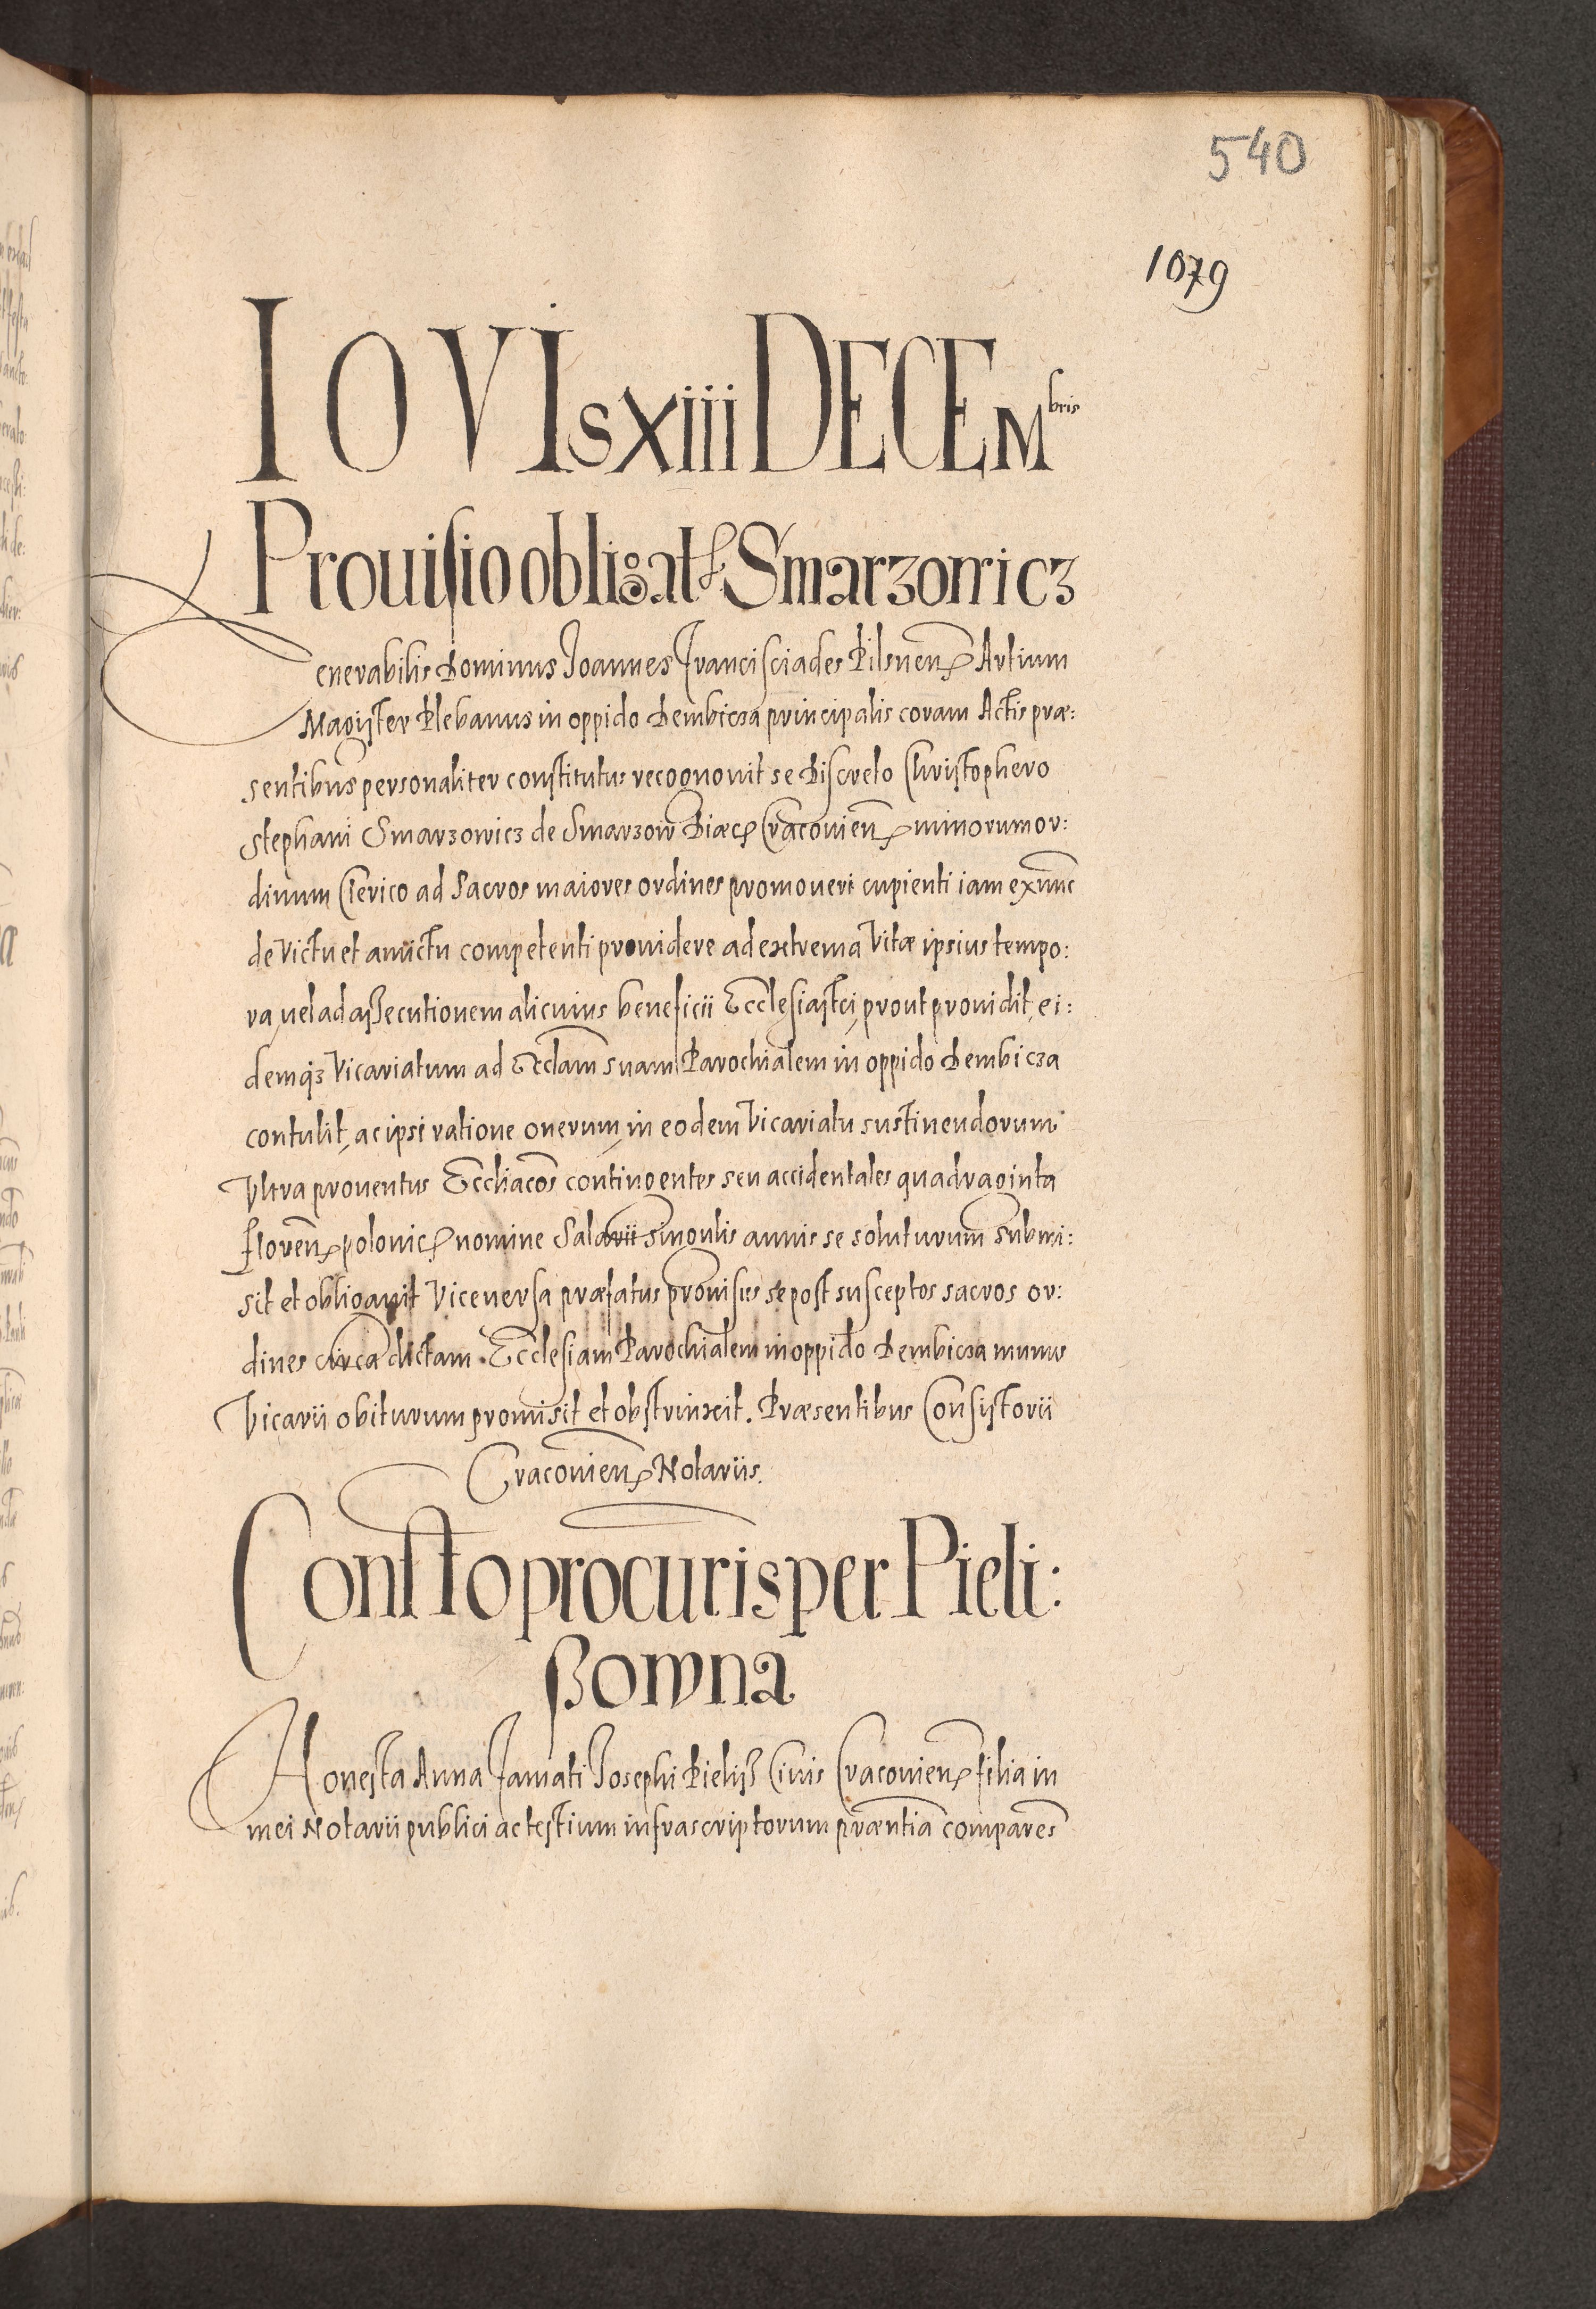 540
1079
IOVIs Xiii DECEMbris
Prouisio obligat Smarzowicz
Venerabilis Dominus Joannes Francisciades Pilsnen Artium
Magister Plebanus in oppido Dembicza principalis coram Actis præ:
sentibus personaliter constitutus recognouit se Discreto Christophero
Stephani Smarzowicz de Smarzow Diæc Cracouien minorum or:
dinum Clerico ad Sacros maiores ordines promoueri cupienti iam exnunc
de Victu et amictu competenti prouidere ad extrema Vitæ ipsius tempo:
ra, uel ad aßecutionem alicuius beneficii Ecclesiastci, prout prouidit, ei:
demq3 Vicariatum ad Ecclam suam Parochialem in oppido Dembicza
contulit, ac ipsi ratione onerum, in eodem Vicariatu sustinendorum
Vltra prouentus Eccliacos contingentes seu accidentales quadraginta
floren polonic nomine Salarii singulis annis se soluturum submi:
sit et obligauit Viceuersa præfatus prouisus se post susceptos sacros or:
dines circa dictam Ecclesiam Parochialem in oppido Dembicza munus
Vicarii obiturum promisit et obstrinxit. Præsentibus Consistorii
Cracouien Notariis.
Constto procuris per Pieli:
ßowna
Honesta Anna Famati Josephi Pieliß Ciuis Cracouien filia in
mei Notarii publici ac testium infrascriptorum præntia compares